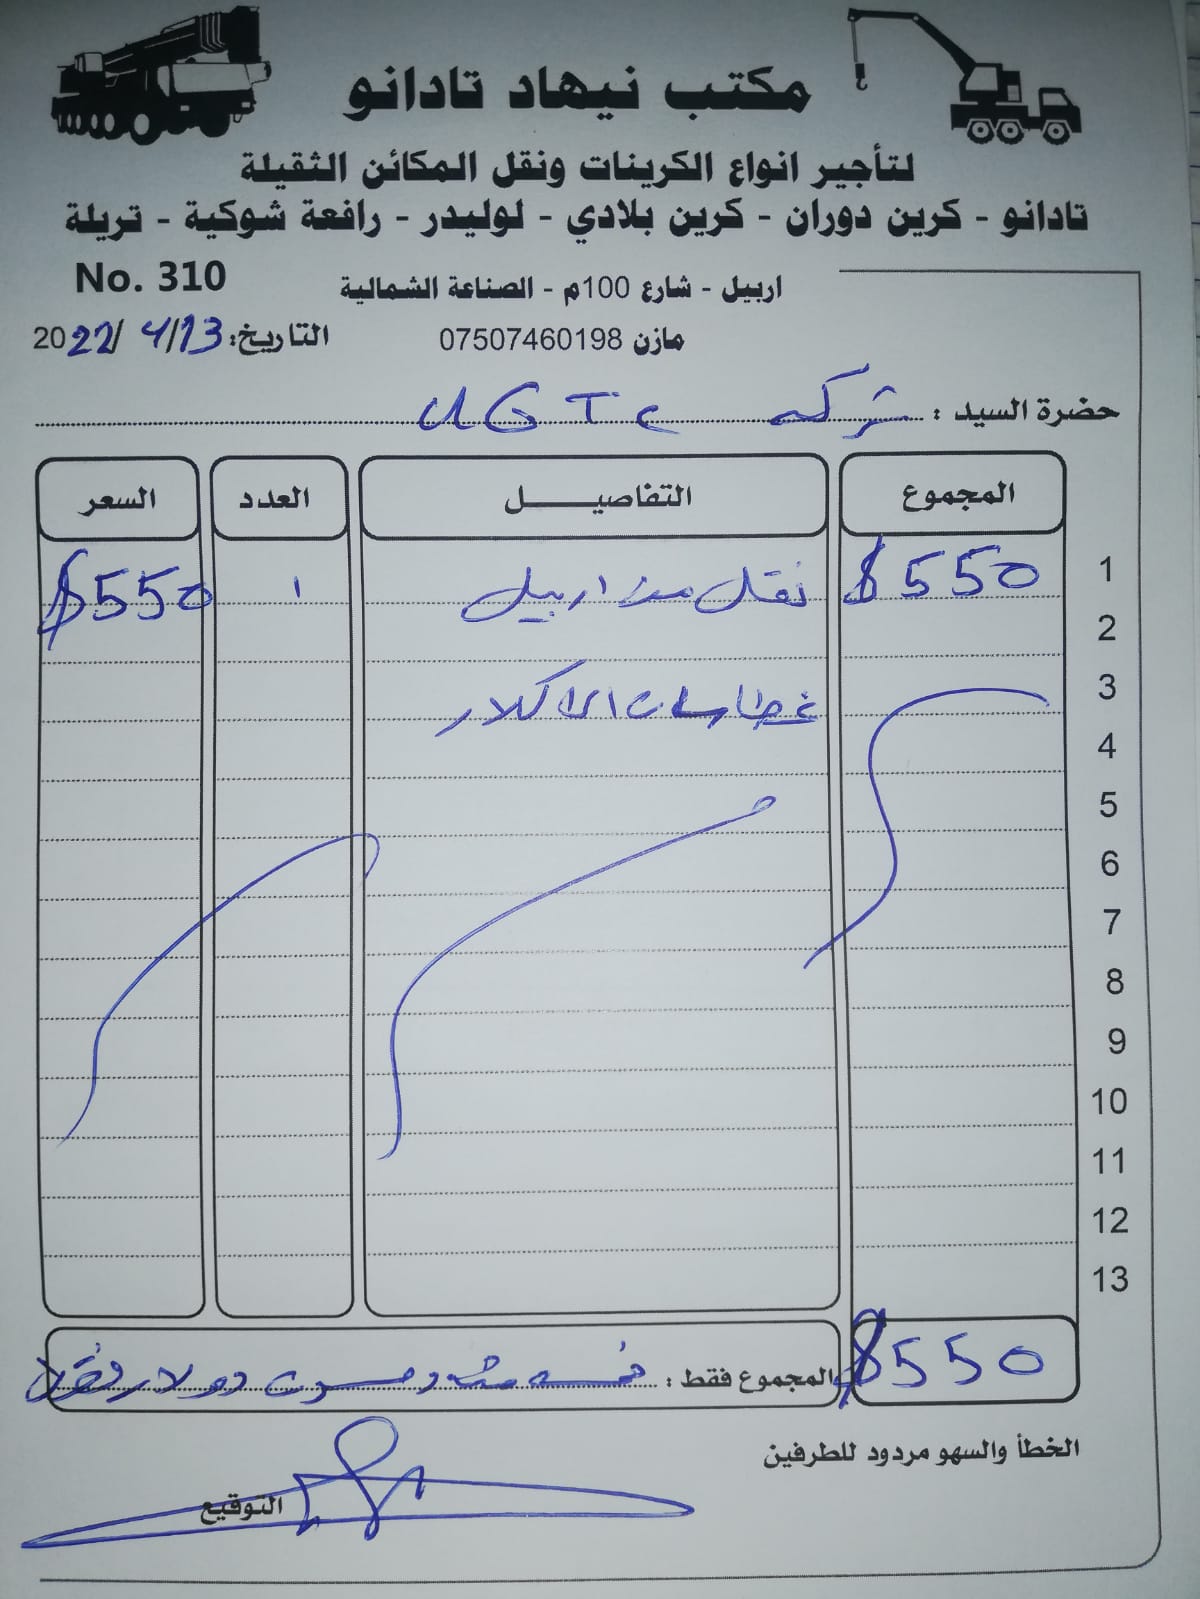 مكتب نيهاد تادانو
لتأجير انواع الكرينات ونقل المكائن الثقيلة
تادانو - كرين دوران - كرين بلادي - لوليدر - رافعة شوكية - تريلة
No. 310
اربيل - شارع 100م - الصناعة الشمالية
التاريخ: 13/ 4/ 2022
مازن 07507460198
حضرة السيد : شركه UGTC
المجموع التفاصيـــــل العدد السعر
1 $550 نقل من اربيل ١ $550
2
3 غطاسات الا كلار
4
5
6
7
8
9
10
11
12
13
$550 المجموع فقط : خمسه مئه وخمسون دولار فقط
الخطأ والسهو مردود للطرفين
التوقيع